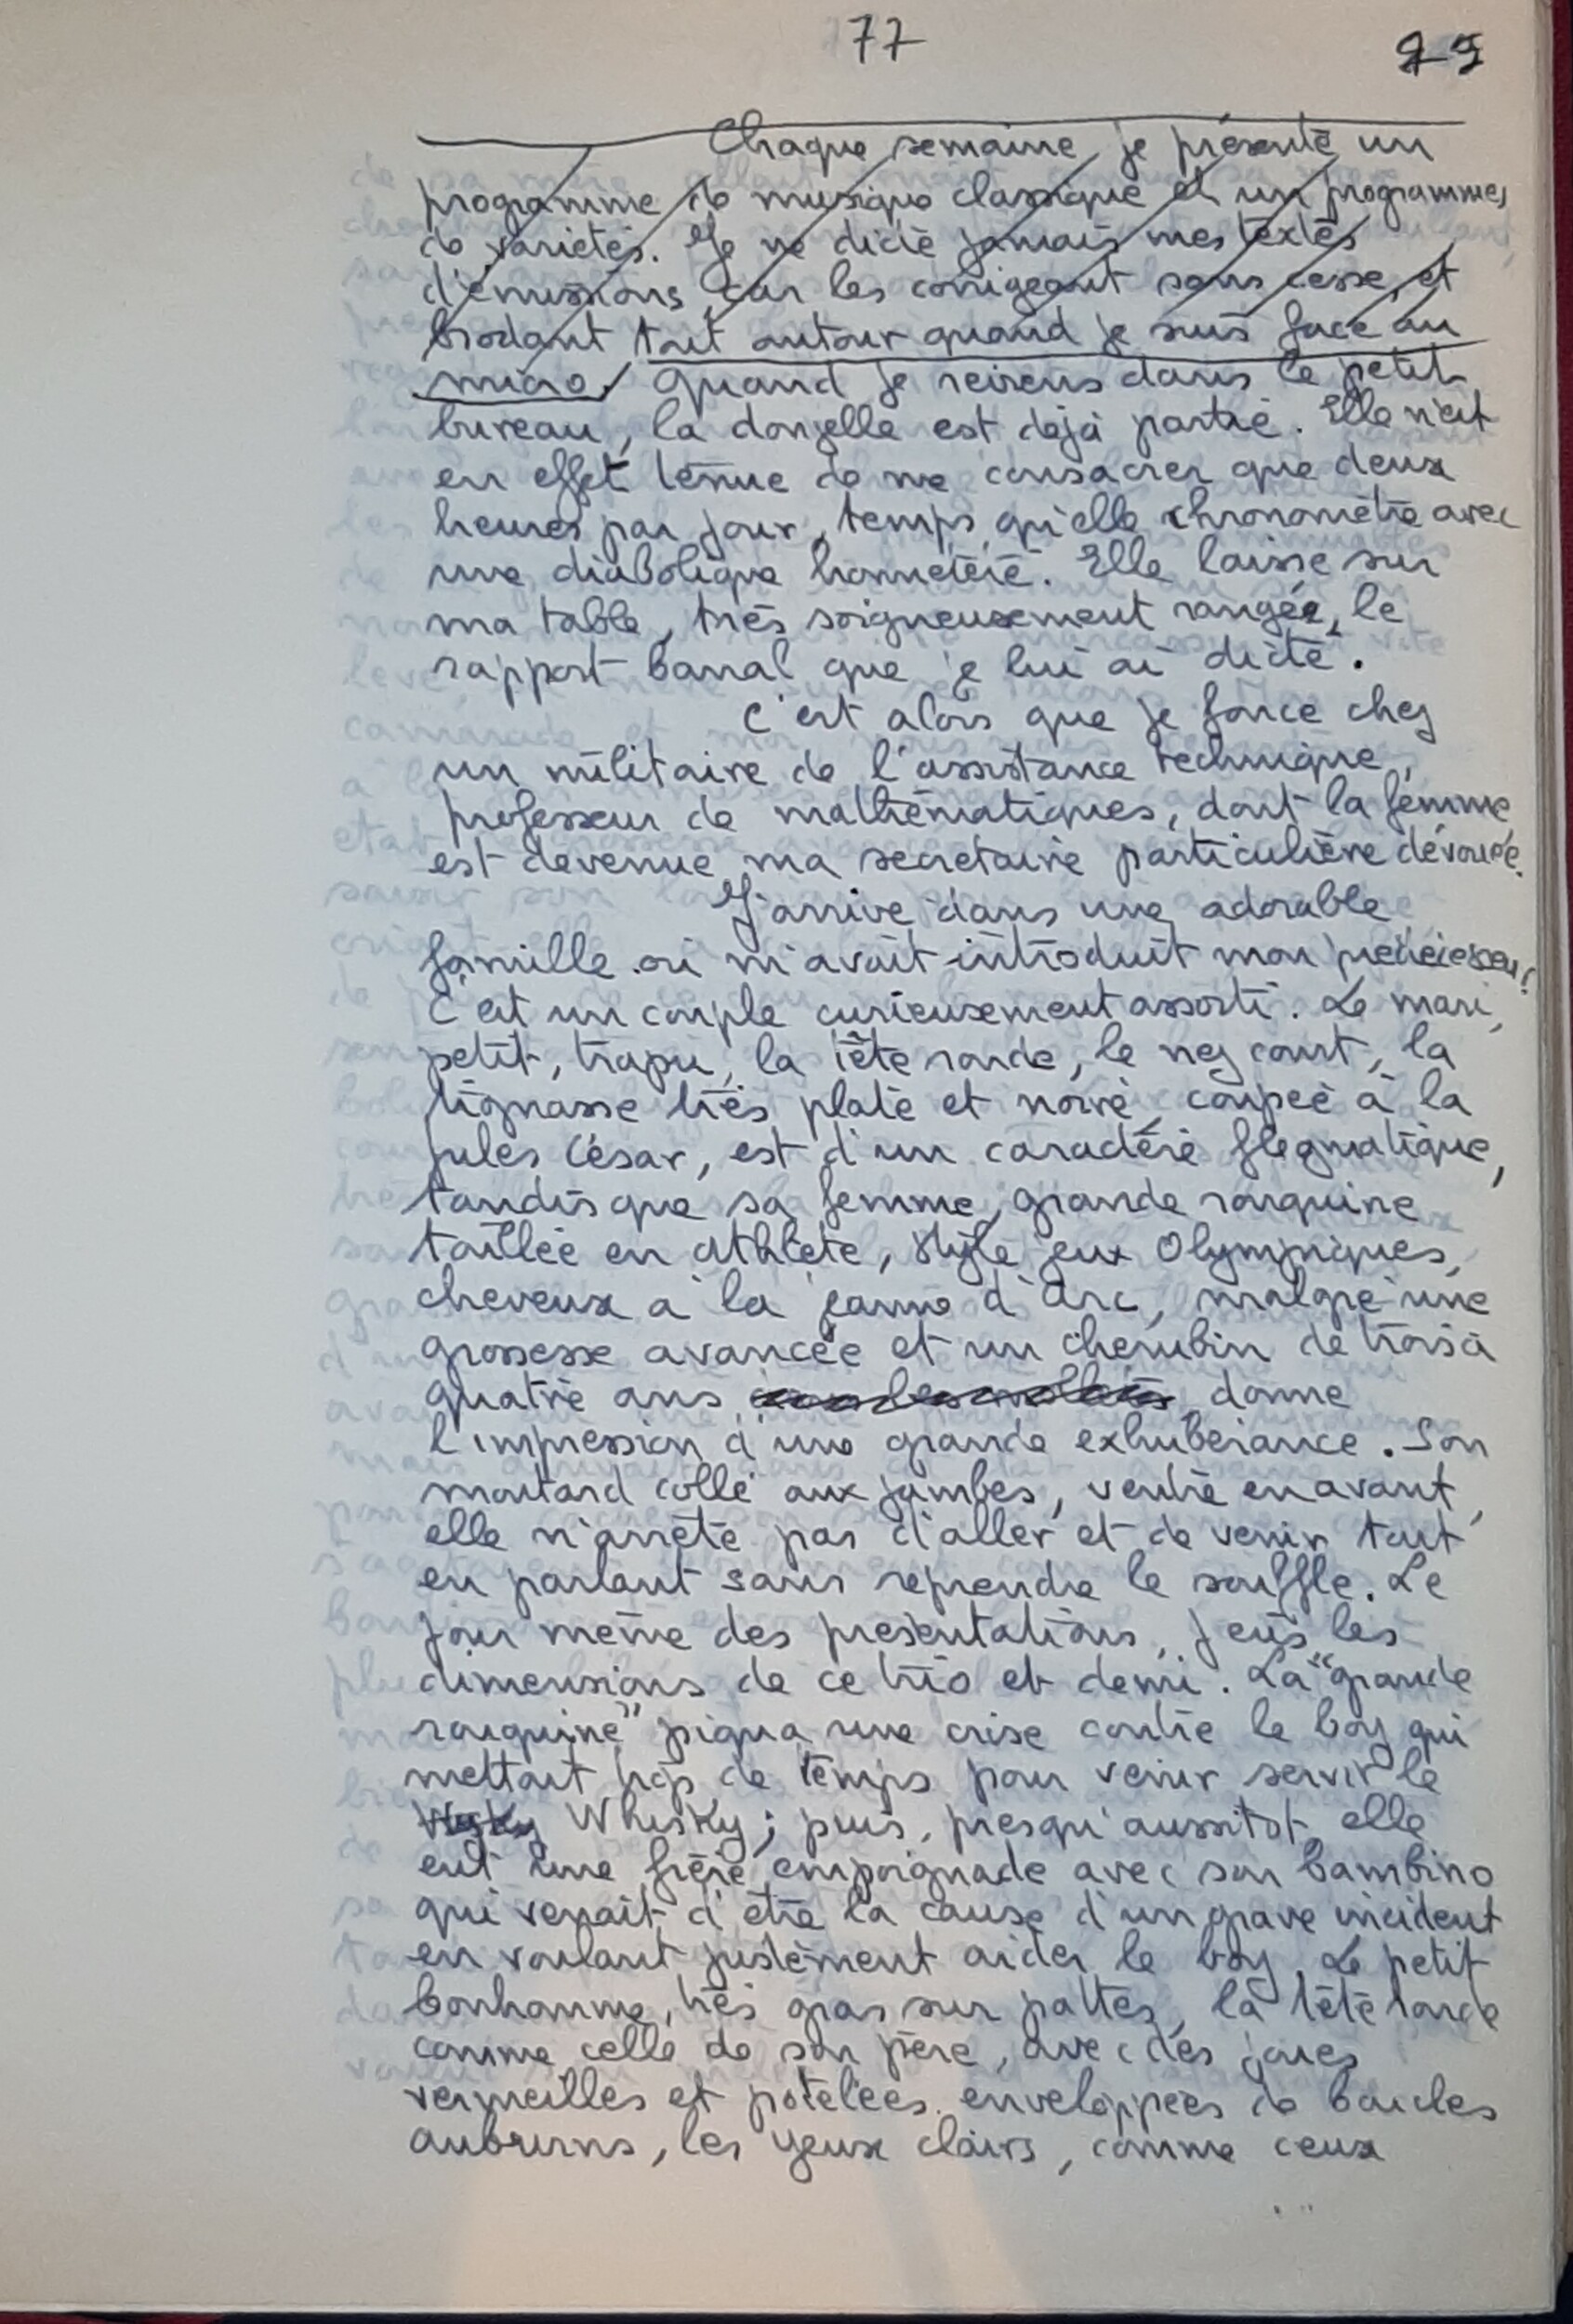 77
Chaque semaine, je présente un
programme de musique classique et un programme
de variétés. Je ne dicte jamais mes textes
d'émissions, car les corrigeant sans cesse, et
brodant tout autour quand je suis face au
micro. Quand je reviens dans le petit
bureau, la donzelle est déjà partie. Elle n'est
en effet tenue de me consacrer que deux
heures par jour, temps qu'elle chronomètre avec
une diabolique honnêteté. Elle laisse sur
ma table, très soigneusement rangée, le
rapport banal que je lui ai dicté.
C'est alors que je fonce chez
un militaire de l'assistance technique,
professeur de mathématiques, dont la femme
est devenue ma secrétaire particulière dévouée.
J'arrive dans une adorable
famille où m'avait introduit mon prédécesseur.
C'est un couple curieusement assorti. Le mari,
petit, trapu, la tête ronde, le nez court, la
tignasse très plate et noire, coupée à la
Jules César, est d'un caractère flegmatique,
tandis que sa femme, grande rouquine
taillée en athlète, style jeux Olympiques,
cheveux à la Jeanne d'Arc, malgré une
grossesse avancée et un chérubin de trois à
quatre ans, donne
l'impression d'une grande exhubérance. Son
moutard collé aux jambes, ventre en avant,
elle n'arrête pas d'aller et de venir tout
en parlant sans reprendre le souffle. Le
jour même des présentations, j'eus les
dimensions de ce trio et demi. La "grande
rouquine" piqua une crise contre le boy qui
mettait trop de temps pour venir servir le
Whisky; puis, presqu'aussitôt, elle
eut une fière empoignade avec son bambino
qui venait d'être la cause d'un grave incident
en voulant justement aider le boy. Le petit
bonhomme, très gras sur pattes, la tête ronde
comme celle de son père, avec des joues
vermeilles et potelées enveloppées de boucles
auburns, les yeux clairs, comme ceux